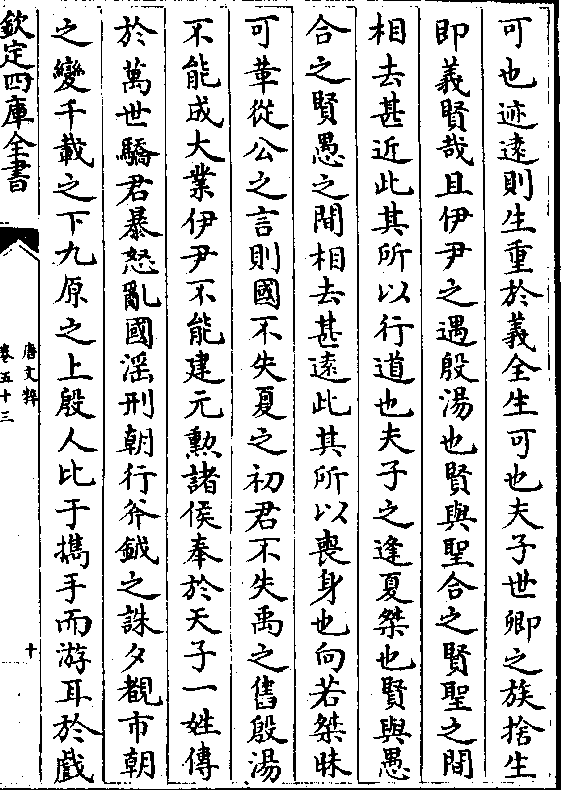 可也迹逺則生重於義全生可也夫子世卿之族捨生
即義賢哉且伊尹之遇殷湯也賢與聖合之賢聖之間
相去甚近此其所以行道也夫子之逢夏桀也賢與愚
合之賢愚之間相去甚逺此其所以喪身也向若桀昧
可革從公之言則國不失夏之初君不失禹之舊殷湯
不能成大業伊尹不能建元勲諸侯奉於天子一姓傳
於萬世驕君暴怒亂國滛刑朝行斧鉞之誅夕覩市朝
之變千載之下九原之上殷人比干攜手而游耳於戲
欽定四庫全書
唐文粹
卷五十三
十